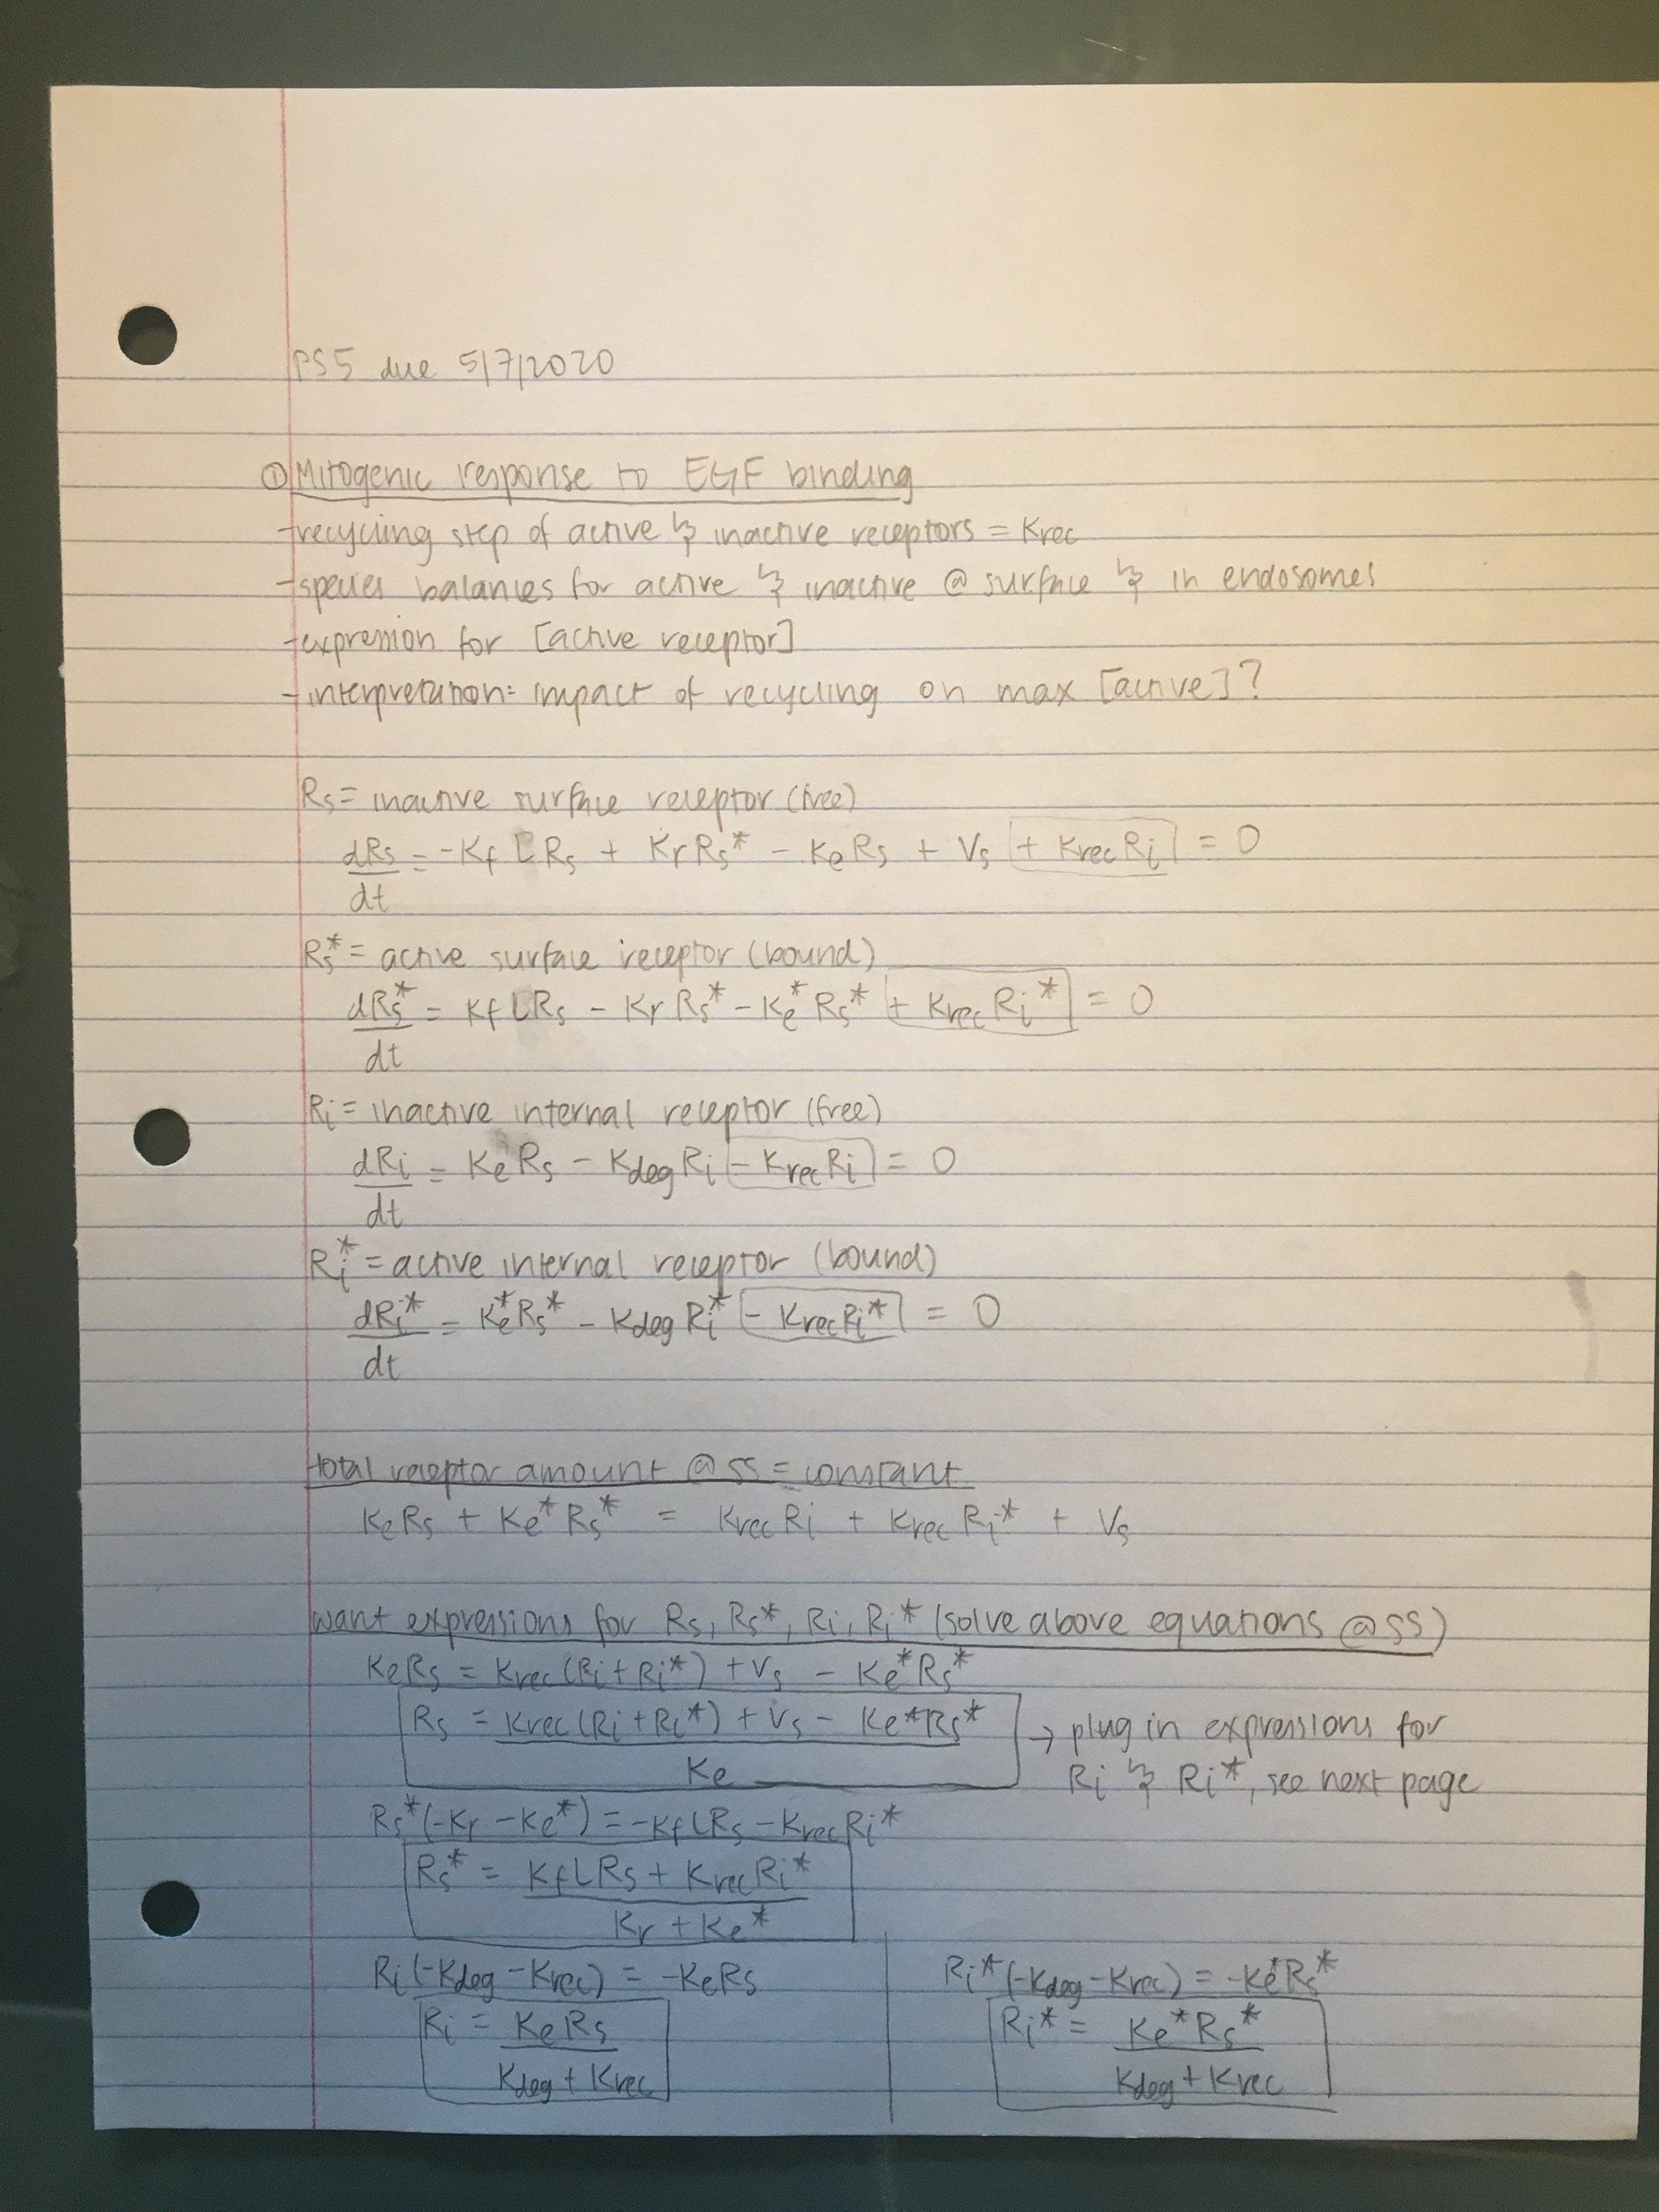 PS5 due 5/7/2020
① Mitogenic response to EGF binding
- recycling step of active & inactive receptors = Krec
- species balances for active & inactive @ surface & in endosomes
- expression for [active receptor]
- interpretation: impact of recycling on max [active]?
Rs = inactive surface receptor (free)
dRs/dt = -Kf LRs + KrRs* - KeRs + Vs + KrecRi = 0
Rs* = active surface receptor (bound)
dRs*/dt = KfLRs - KrRs* - Ke*Rs* + KrecRi* = 0
Ri = inactive internal receptor (free)
dRi/dt = KeRs - KdegRi - KrecRi = 0
Ri* = active internal receptor (bound)
dRi*/dt = Ke*Rs* - KdegRi* - KrecRi* = 0
total receptor amount @ ss = constant
KeRs + Ke*Rs* = KrecRi + KrecRi* + Vs
want expressions for Rs, Rs*, Ri, Ri* (solve above equations @ss)
KeRs = Krec(Ri+Ri*) + Vs - Ke*Rs*
Rs = (Krec(Ri+Ri*) + Vs - Ke*Rs*)/Ke → plug in expressions for
Ri & Ri*, see next page
Rs*(-Kr - Ke*) = -KfLRs - KrecRi*
Rs* = (KfLRs + KrecRi*)/(Kr + Ke*)
Ri(-Kdeg - Krec) = -KeRs
Ri = KeRs/(Kdeg + Krec)
Ri*(-Kdeg - Krec) = -Ke*Rs*
Ri* = Ke*Rs*/(Kdeg + Krec)